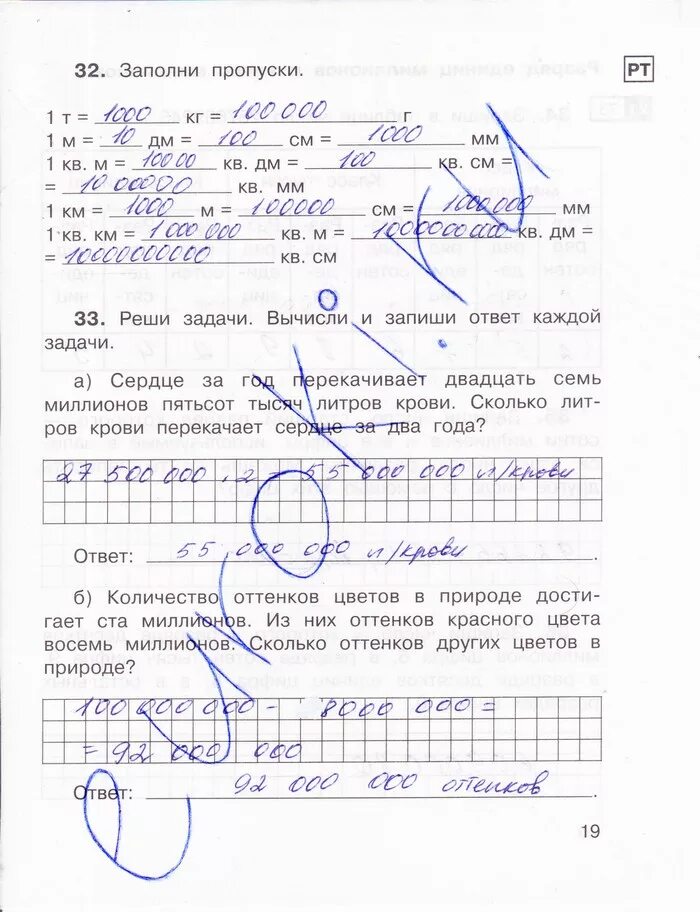 32. Заполни пропуски.
РТ
1 т = 1000 кг = 100 000 г
1 м = 10 дм = 100 см = 1000 мм
1 кв. м = 10000 кв. дм = 100 кв. см =
= 1000000 кв. мм
1 км = 1000 м = 100000 см = 1000000 мм
1 кв. км = 1000 000 кв. м = 1000000000 кв. дм =
= 10000000000 кв. см
33. Реши задачи. Вычисли и запиши ответ каждой
задачи.
а) Сердце за год перекачивает двадцать семь
миллионов пятьсот тысяч литров крови. Сколько лит-
ров крови перекачает сердце за два года?
27 500 000 . 2 = 55 000 000 л/крови
Ответ: 55 000 000 л/крови.
б) Количество оттенков цветов в природе дости-
гает ста миллионов. Из них оттенков красного цвета
восемь миллионов. Сколько оттенков других цветов в
природе?
100 000 000 - 8000 000 =
= 92 000 000
Ответ: 92 000 000 оттенков.
19